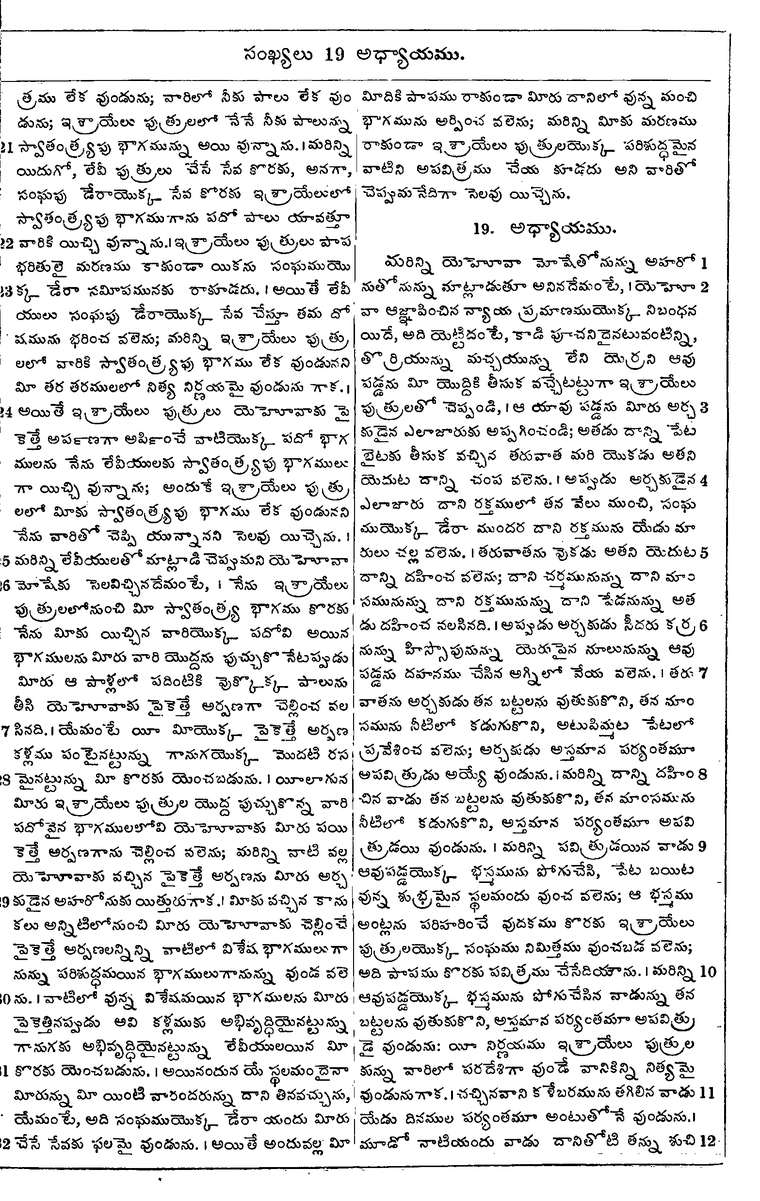 సంఖ్యలు 19 అధ్యాయము.
త్రము లేక వుండును; వారిలో నీకు పాలు లేక వుం
డును; ఇశ్రాయేలు పుత్రులలో నేనే నీకు పాలున్ను
21 స్వాతంత్ర్యపు భాగమున్ను అయి వున్నాను. । మరిన్ని
యిదుగో, లేవీ పుత్రులు చేసే సేవ కొరకు, అనగా,
సంఘపు డేరాయొక్క సేవ కొరకు ఇశ్రాయేలులో
స్వాతంత్ర్యపు భాగముగాను పదో పాలు యావత్తూ
22 వారికి యిచ్చి వున్నాను. । ఇశ్రాయేలు పుత్రులు పాప
భరితులై మరణము కాకుండా యికను సంఘముయొ
23 క్క డేరా సమీపమునకు రాకూడదు. । అయితే లేవీ
యులు సంఘపు డేరాయొక్క సేవ చేస్తూ తమ దో
షమును భరించ వలెను; మరిన్ని ఇశ్రాయేలు పుత్రు
లలో వారికి స్వాతంత్ర్యపు భాగము లేక వుండునని
మీ తర తరములలో నిత్య నిర్ణయమై వుండును గాక. ।
24 అయితే ఇశ్రాయేలు పుత్రులు యెహోవాకు పై
కెత్తే అర్పణగా అర్పించే వాటియొక్క పదో భాగ
ములను నేను లేవీయులకు స్వాతంత్ర్యపు భాగములు
గా యిచ్చి వున్నాను; అందుకే ఇశ్రాయేలు పుత్రు
లలో మీకు స్వాతంత్ర్యపు భాగము లేక వుండునని
నేను వారితో చెప్పి యున్నానని సెలవు యిచ్చెను. ।
5 మరిన్ని లేవీయులతో మాట్లాడి చెప్పుమని యెహోవా
26 మోషేకు సెలవిచ్చినదేమంటే, । నేను ఇశ్రాయేలు
పుత్రులలోనుంచి మీ స్వాతంత్ర్య భాగము కొరకు
నేను మీకు యిచ్చిన వారియొక్క పదోవి అయిన
భాగములను మీరు వారి యొద్దను పుచ్చుకొనేటప్పుడు
మీరు ఆ పాళ్లలో పదింటికి వొక్కొక్క పాలును
తీసి యెహోవాకు పైకెత్తే అర్పణగా చెల్లించ వల
7 సినది. । యేమంటే యీ మీయొక్క పైకెత్తే అర్పణ
కళ్లము పంటైనట్టున్ను గానుగయొక్క మొదటి రస
28 మైనట్టున్ను మీ కొరకు యెంచబడును. । యీలాగున
మీరు ఇశ్రాయేలు పుత్రుల యొద్ద పుచ్చుకొన్న వారి
పదోవైన భాగములలోవి యెహోవాకు మీరు పయి
కెత్తే అర్పణగాను చెల్లించ వలెను; మరిన్ని వాటి వల్ల
యెహోవాకు వచ్చిన పైకెత్తే అర్పణను మీరు అర్చ
29 కుడైన అహరోనుకు యిత్తురుగాక. । మీకు వచ్చిన కాను
కలు అన్నిటిలోనుంచి మీరు యెహోవాకు చెల్లించే
పైకెత్తే అర్పణలన్నిన్ని వాటిలో విశేష భాగములుగా
నున్ను పరిశుద్ధమయిన భాగములుగానున్ను వుండ వలె
30 ను. । వాటిలో వున్న విశేషమయిన భాగములను మీరు
పైకెత్తినప్పుడు అవి కళ్లముకు అభివృద్ధియైనట్టున్ను
గానుగకు అభివృద్ధియైనట్టున్ను లేవీయులయిన మీ
31 కొరకు యెంచబడును. । అయినందున యే స్థలమందైనా
మీరున్ను మీ యింటి వారందరున్ను దాని తినవచ్చును,
యేమంటే, అది సంఘముయొక్క డేరా యందు మీరు
32 చేసే సేవకు ఫలమై వుండును. । అయితే అందువల్ల మీ
మీదికి పాపము రాకుండా మీరు దానిలో వున్న మంచి
భాగమును అర్పించ వలెను; మరిన్ని మీకు మరణము
రాకుండా ఇశ్రాయేలు పుత్రులయొక్క పరిశుద్ధమైన
వాటిని అపవిత్రము చేయ కూడదు అని వారితో
చెప్పుమనేదిగా సెలవు యిచ్చెను.
19. అధ్యాయము.
మరిన్ని యెహోవా మోషేతోనున్ను అహరో 1
నుతోనున్ను మాట్లాడుతూ అనినదేమంటే, । యెహో 2
వా ఆజ్ఞాపించిన న్యాయ ప్రమాణముయొక్క నిబంధన
యిదే, అది యెట్టిదంటే, కాడి పూచనిదైనటువంటిన్ని,
తొర్రియున్ను మచ్చయున్ను లేని యెర్రని ఆవు
పడ్డను మీ యొద్దికి తీసుక వచ్చేటట్టుగా ఇశ్రాయేలు
పుత్రులతో చెప్పండి, । ఆ యావు పడ్డను మీరు అర్చ 3
కుడైన ఎలాజారుకు అప్పగించండి; అతడు దాన్ని పేట
బైటకు తీసుక వచ్చిన తరువాత మరి యొకడు అతని
యెదుట దాన్ని చంప వలెను. । అప్పుడు అర్చకుడైన 4
ఎలాజారు దాని రక్తములో తన వేలు ముంచి, సంఘ
ముయొక్క డేరా ముందర దాని రక్తమును యేడు మా
రులు చల్ల వలెను. । తరువాతను వొకడు అతని యెదుట 5
దాన్ని దహించ వలెను; దాని చర్మమునున్ను దాని మాం
సమునున్ను దాని రక్తమునున్ను దాని పేడనున్ను అత
డు దహించ వలసినది. । అప్పుడు అర్చకుడు సీదరు కర్ర 6
నున్ను హిస్సోపునున్ను యెరుపైన నూలునున్ను ఆవు
పడ్డను దహనము చేసిన అగ్నిలో వేయ వలెను. । తరు 7
వాతను అర్చకుడు తన బట్టలను వుతుకుకొని, తన మాం
సమును నీటిలో కడుగుకొని, అటుపిమ్మట పేటలో
ప్రవేశించ వలెను; అర్చకుడు అస్తమాన పర్యంతమూ
అపవిత్రుడు అయ్యే వుండును. । మరిన్ని దాన్ని దహిం 8
చిన వాడు తన బట్టలను వుతుకుకొని, తన మాంసమును
నీటిలో కడుగుకొని, అస్తమాన పర్యంతమూ అపవి
త్రుడయి వుండును. । మరిన్ని పవిత్రుడయిన వాడు 9
ఆవుపడ్డయొక్క భస్మమును పోగుచేసి, పేట బయిట
వున్న శుభ్రమైన స్థలమందు వుంచ వలెను; ఆ భస్మము
అంట్లను పరిహరించే వుదకము కొరకు ఇశ్రాయేలు
పుత్రులయొక్క సంఘము నిమిత్తము వుంచబడ వలెను;
అది పాపము కొరకు పవిత్రము చేసేదియౌను. । మరిన్ని 10
ఆవుపడ్డయొక్క భస్మమును పోగుచేసిన వాడున్ను తన
బట్టలను వుతుకుకొని, అస్తమాన పర్యంతమూ అపవిత్రు
డై వుండును: యీ నిర్ణయము ఇశ్రాయేలు పుత్రుల
కున్ను వారిలో పరదేశిగా వుండే వానికిన్ని నిత్యమై
వుండునుగాక. । చచ్చినవాని కళేబరమును తగిలిన వాడు 11
యేడు దినముల పర్యంతమూ అంటుతోనే వుండును. ।
మూడో నాటియందు వాడు దానితోటి తన్ను శుచి 12